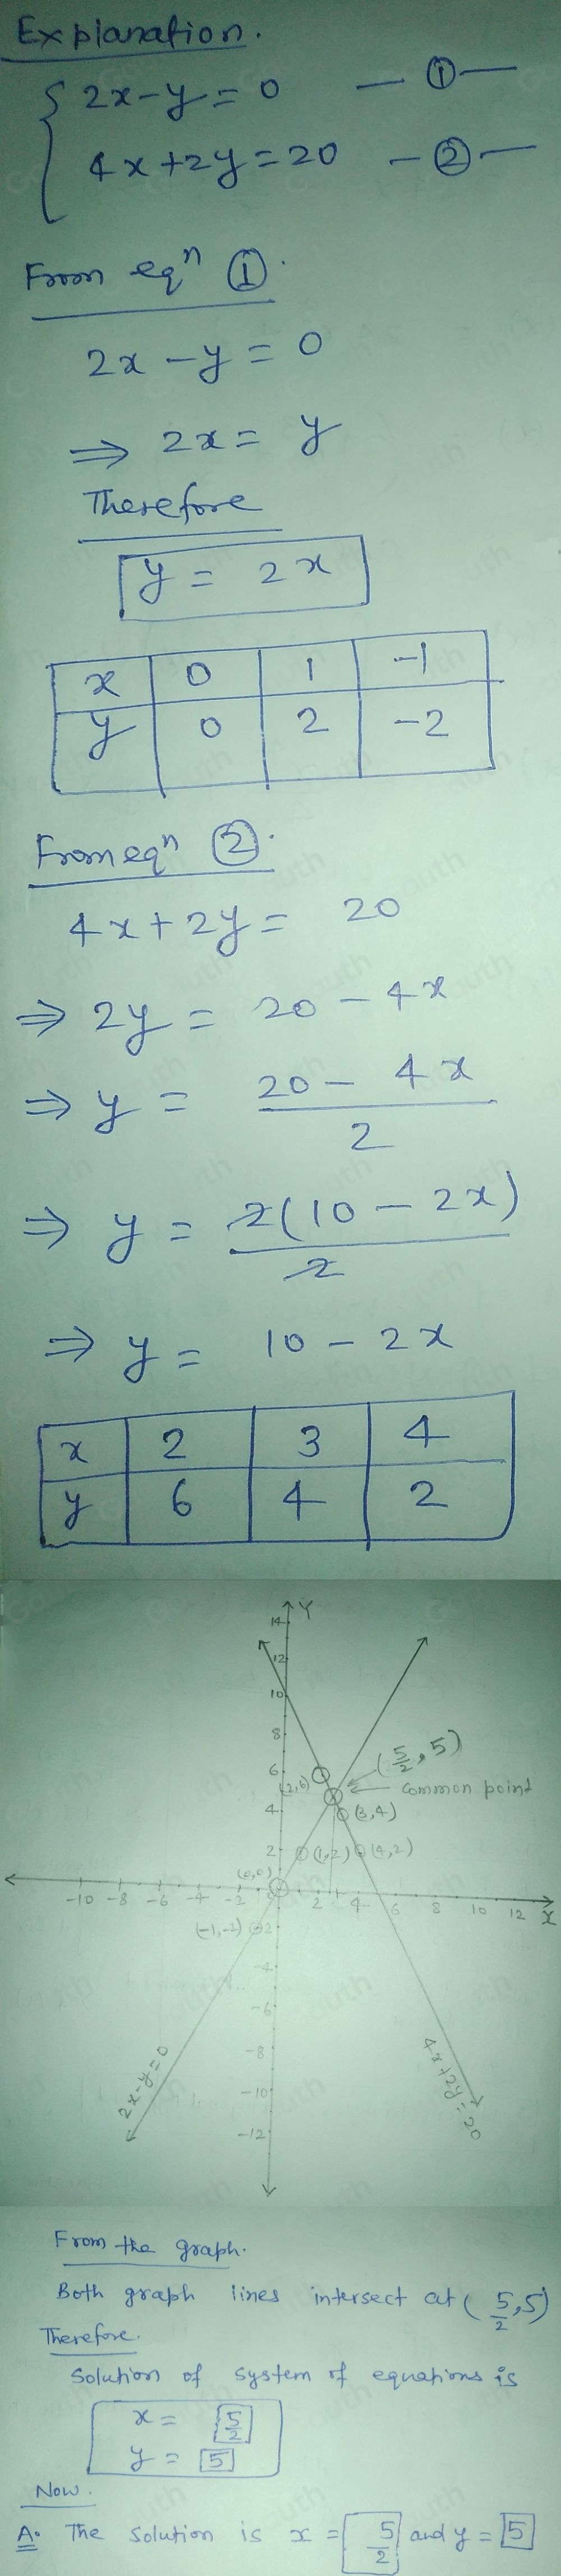 Explanation.
2x-y=0 — ① —
4x+2y=20 — ② —
From eqⁿ ①.
2x-y=0
⇒ 2x= y
Therefore
y = 2x
x 0 1 -1
y 0 2 -2
From eqⁿ ②.
4x+2y= 20
⇒ 2y = 20-4x
⇒ y = (20-4x)/2
⇒ y = 2(10-2x)/2
⇒ y = 10-2x
x 2 3 4
y 6 4 2
Y
14
12
10
8
6
(5/2, 5)
(2,6)
common point
4
(3,4)
2
(1,2)
(4,2)
(0,0)
-10 -8 -6 -4 -2
2 4 6 8 10 12 X
(-1,-2)
-2
-4
-6
-8
-10
-12
2x-y=0
4x+2y=20
From the graph.
Both graph lines intersect at (5/2,5)
Therefore.
Solution of system of equations is
x = 5/2
y = 5
Now.
A. The solution is x = 5/2 and y = 5